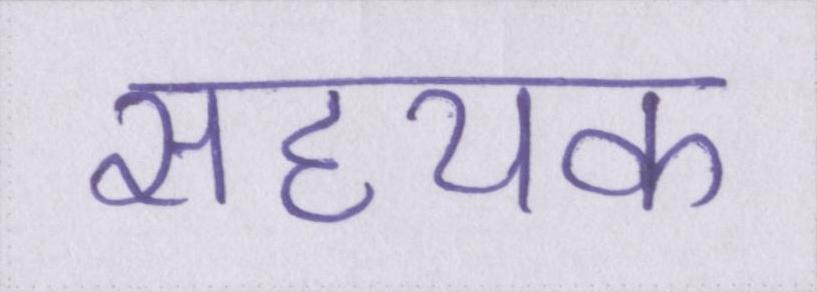 सहयक